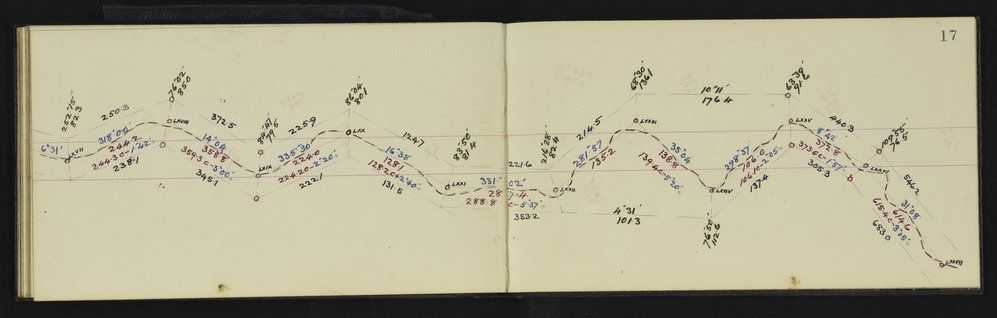 17
252°15'
82.3
250.3
76°02'
85.0
6°31'
LXVII
318°00'
244.2
244.3 C-1°42'
238.1
LXVIII
372.5
14°04'
358.8
359.3 C-3°00'
345.1
84°47'
79.5
LXIX
225.9
335°30'
224.0
224.2 C-2°20'
222.1
86°04'
80.1
LXX
124.7
16°38'
128.1
128.2 C-2°40'
131.5
83°50'
81.4
LXXI
221.6
331°02'
287.4
288.8 C-5°37'
353.2
246°28'
82.4
LXXII
214.5
281°57'
135.2
68°30'
136.1
LXXIII
10°11'
176.4
35°04'
138.8
139.4 C-5°20'
4°31'
101.3
LXXIV
76°50'
112.6
298°37'
156.0
137.4
63°39'
91.6
LXXV
440.3
8°42'
372.8
373.0 C-1°57'
305.3
100°55'
76.5
LXXVI
546.2
31°08'
614.6
615.4 C-3°05'
683.0
LXXVII